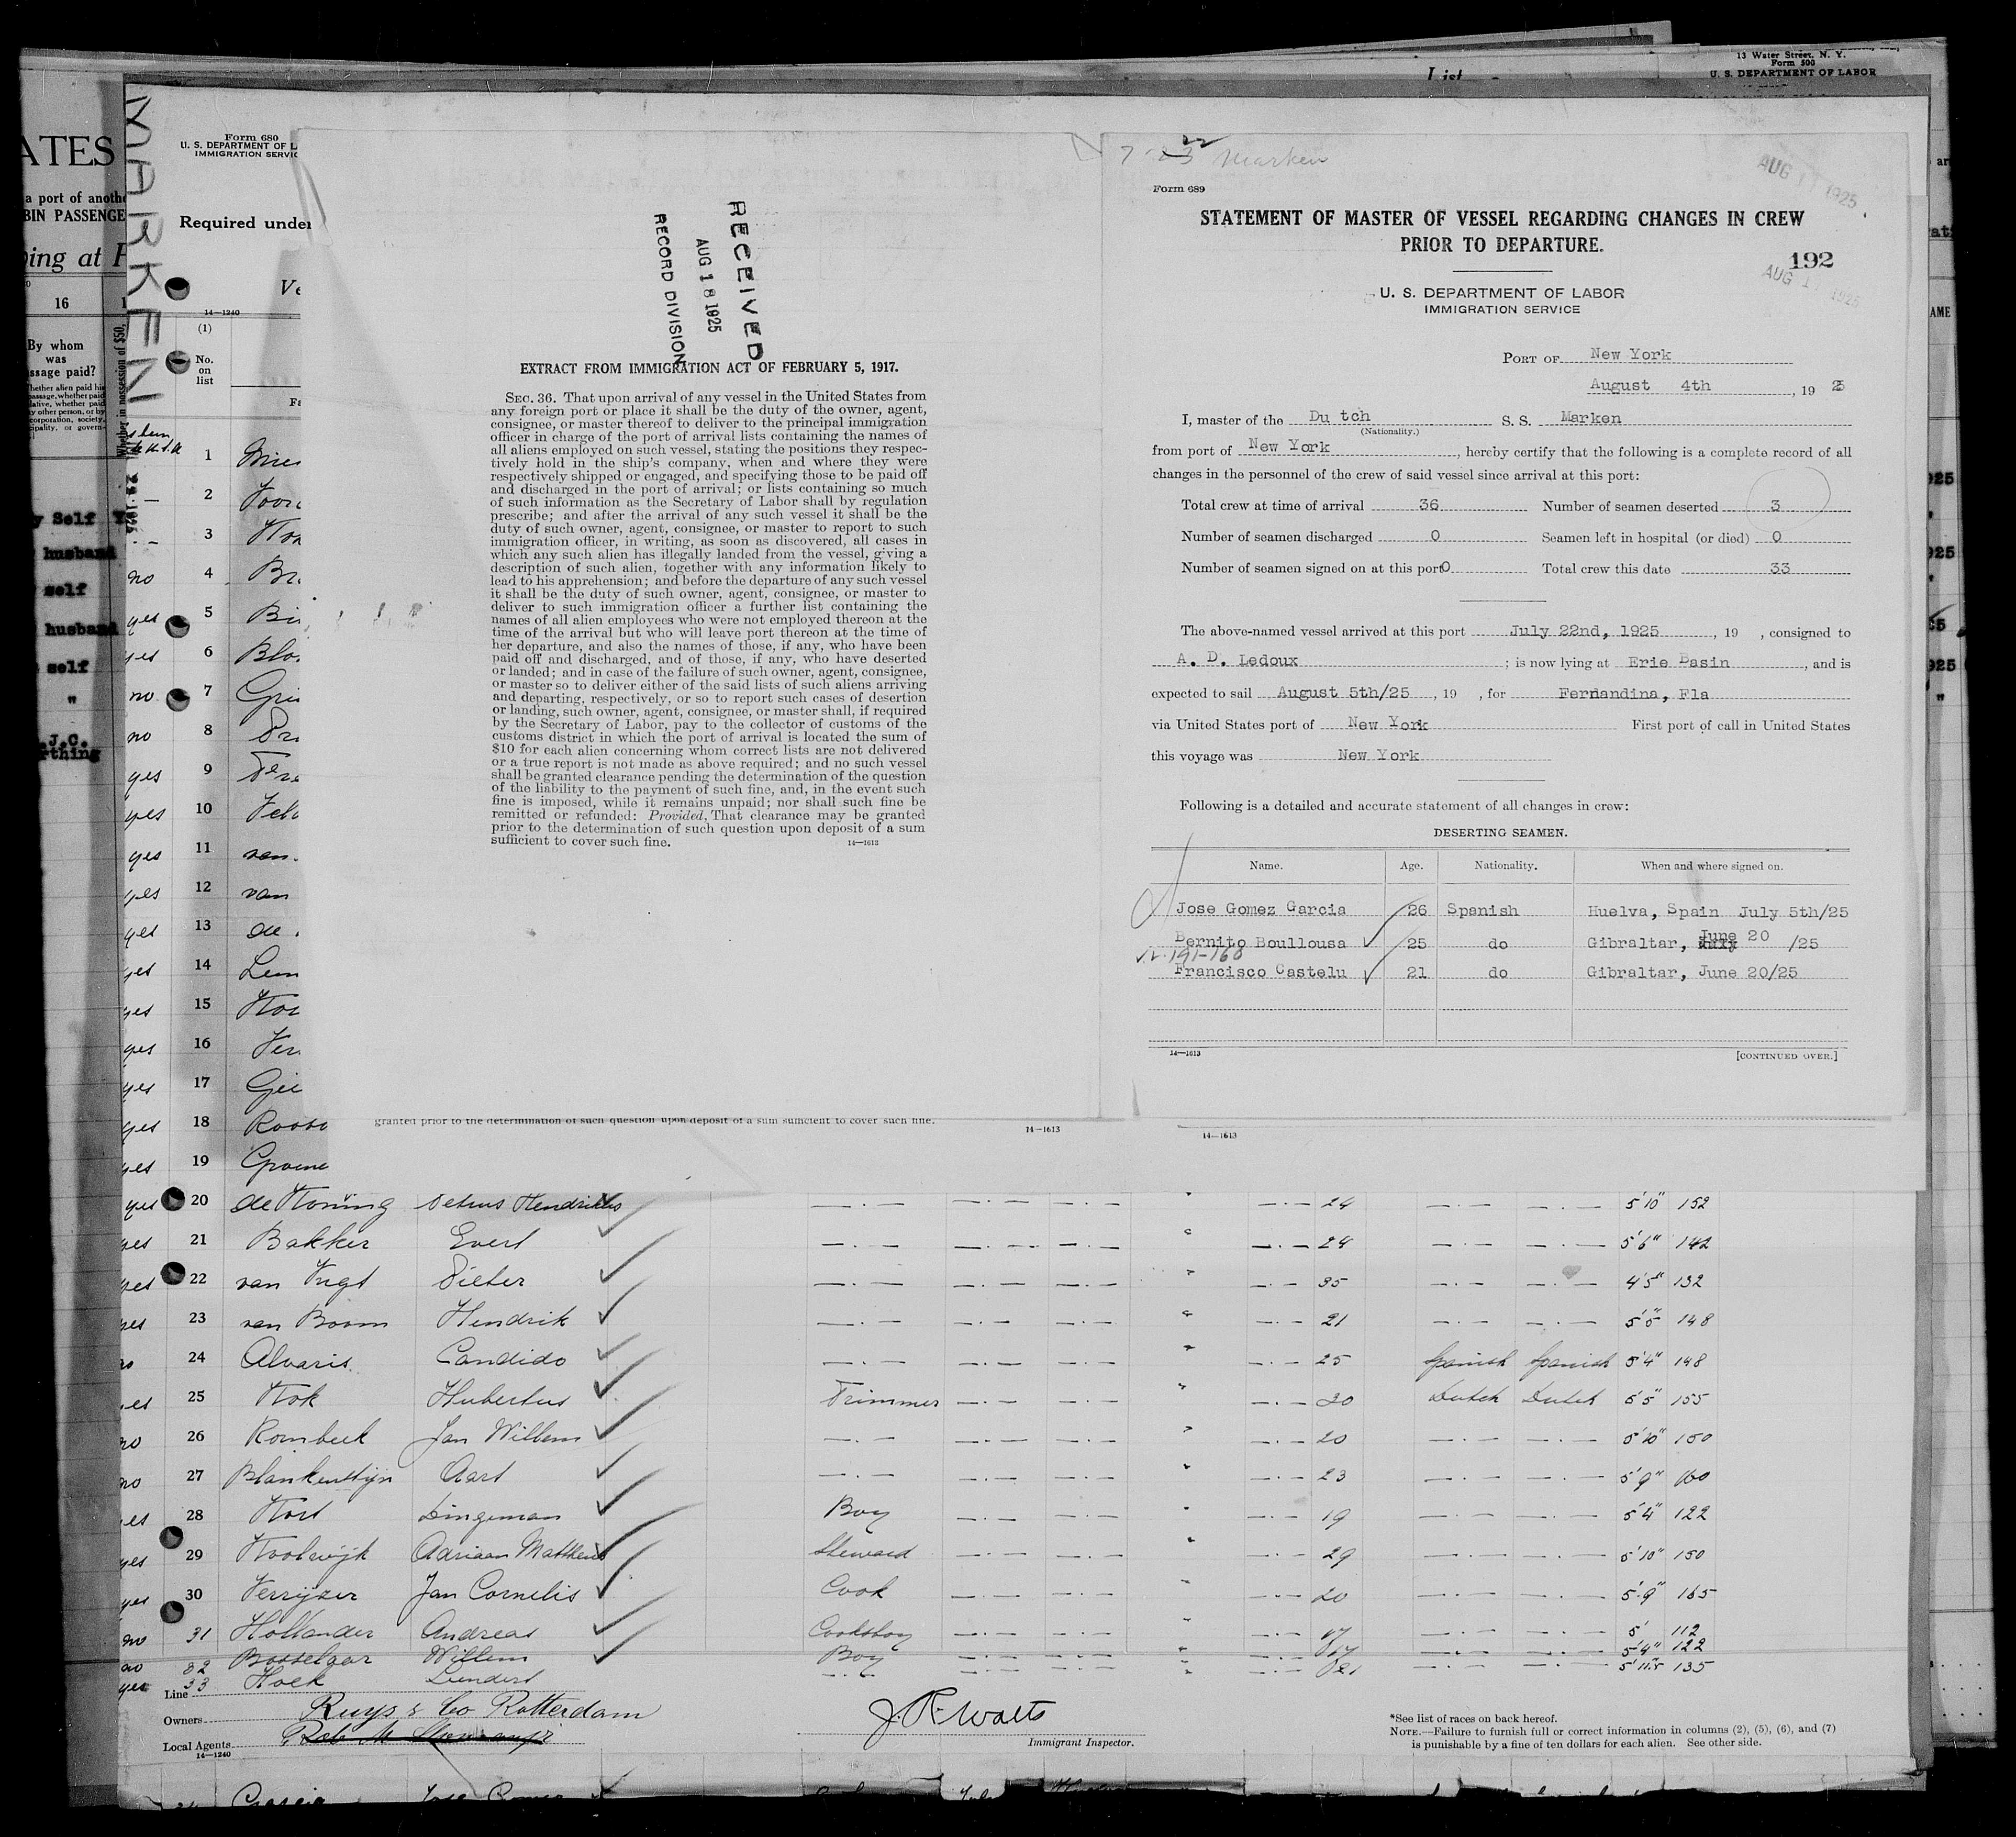 13 Water Street, N. Y.
Form 500
U. S. DEPARTMENT OF LABOR
List
ATES
a port of anothe
BIN PASSENGE
ing at
16
By whom
was
ssage paid?
Whether in possession of $50,
y Self
husband
self
husband
self
"
J.C.
rthing
MARKEN
Form 680
U. S. DEPARTMENT OF L
IMMIGRATION SERVIC
Required under
Ve
14—1240
(1)
No.
on
list
Fa
1
— 2
— 3
no 4 Br
yes 5 Bi
yes 6 Blo
no 7 Gri
no 8
yes 9
yes 10
yes 11 van
yes 12 van
yes 13 de
yes 14 Lem
yes 15
yes 16 Ver
yes 17
yes 18
yes 19 Groene
RECEIVED
AUG 18 1925
RECORD DIVISION
EXTRACT FROM IMMIGRATION ACT OF FEBRUARY 5, 1917.
SEC. 36. That upon arrival of any vessel in the United States from
any foreign port or place it shall be the duty of the owner, agent,
consignee, or master thereof to deliver to the principal immigration
officer in charge of the port of arrival lists containing the names of
all aliens employed on such vessel, stating the positions they respec-
tively hold in the ship's company, when and where they were
respectively shipped or engaged, and specifying those to be paid off
and discharged in the port of arrival; or lists containing so much
of such information as the Secretary of Labor shall by regulation
prescribe; and after the arrival of any such vessel it shall be the
duty of such owner, agent, consignee, or master to report to such
immigration officer, in writing, as soon as discovered, all cases in
which any such alien has illegally landed from the vessel, giving a
description of such alien, together with any information likely to
lead to his apprehension; and before the departure of any such vessel
it shall be the duty of such owner, agent, consignee, or master to
deliver to such immigration officer a further list containing the
names of all alien employees who were not employed thereon at the
time of the arrival but who will leave port thereon at the time of
her departure, and also the names of those, if any, who have been
paid off and discharged, and of those, if any, who have deserted
or landed; and in case of the failure of such owner, agent, consignee,
or master so to deliver either of the said lists of such aliens arriving
and departing, respectively, or so to report such cases of desertion
or landing, such owner, agent, consignee, or master shall, if required
by the Secretary of Labor, pay to the collector of customs of the
customs district in which the port of arrival is located the sum of
$10 for each alien concerning whom correct lists are not delivered
or a true report is not made as above required; and no such vessel
shall be granted clearance pending the determination of the question
of the liability to the payment of such fine, and, in the event such
fine is imposed, while it remains unpaid; nor shall such fine be
remitted or refunded: Provided, That clearance may be granted
prior to the determination of such question upon deposit of a sum
sufficient to cover such fine.
14—1613
granted prior to the determination of such question upon deposit of a sum sufficient to cover such fine.
14—1613
14—1613
7-22 Marken
AUG 1 1925
Form 689
STATEMENT OF MASTER OF VESSEL REGARDING CHANGES IN CREW
PRIOR TO DEPARTURE.
192
AUG 1 1925
U. S. DEPARTMENT OF LABOR
IMMIGRATION SERVICE
PORT OF New York
August 4th, 1925
I, master of the Dutch S. S. Marken
(Nationality.)
from port of New York, hereby certify that the following is a complete record of all
changes in the personnel of the crew of said vessel since arrival at this port:
Total crew at time of arrival 36 Number of seamen deserted 3
Number of seamen discharged 0 Seamen left in hospital (or died) 0
Number of seamen signed on at this port 0 Total crew this date 33
The above-named vessel arrived at this port July 22nd, 1925, 19 , consigned to
A. D. Ledoux; is now lying at Erie Basin, and is
expected to sail August 5th/25, 19 , for Fernandina, Fla
via United States port of New York First port of call in United States
this voyage was New York
Following is a detailed and accurate statement of all changes in crew:
DESERTING SEAMEN.
Name. Age. Nationality. When and where signed on.
Jose Gomez Garcia 26 Spanish Huelva, Spain July 5th/25
Bernito Boullousa 25 do Gibraltar, June 20 /25
191-160
Francisco Castelu 21 do Gibraltar, June 20/25
14—1613
[CONTINUED OVER.]
yes 20 de Koning Petrus Hendrikus 24 5'10" 152
yes 21 Bakker Evert 24 5'6" 142
yes 22 van Vugt Pieter 35 4'5" 132
yes 23 van Boom Hendrik 21 5'5" 148
no 24 Alvaris Candido 25 Spanish Spanish 5'4" 148
yes 25 Kok Hubertus Trimmer 20 Dutch Dutch 5'5" 155
no 26 Rombeek Jan Willem 20 5'10" 150
no 27 Blankenstijn Aart 23 5'9" 160
yes 28 Kort Dingeman Boy 19 5'4" 122
yes 29 Koolwijk Adriaan Mattheus Steward 29 5'10" 150
yes 30 Verrijzer Jan Cornelis Cook 20 5'9" 165
no 31 Hollander Andreas Cooksboy 17 5' 112
no 32 Bosselaar Willem Boy 5'4" 122
yes 33 Hoek Leendert 5'11" 135
Line
Owners Ruys & Co Rotterdam
Local Agents
14—1240
J. R. Watts
Immigrant Inspector.
*See list of races on back hereof.
NOTE.—Failure to furnish full or correct information in columns (2), (5), (6), and (7)
is punishable by a fine of ten dollars for each alien. See other side.
Garcia Jose Gomez